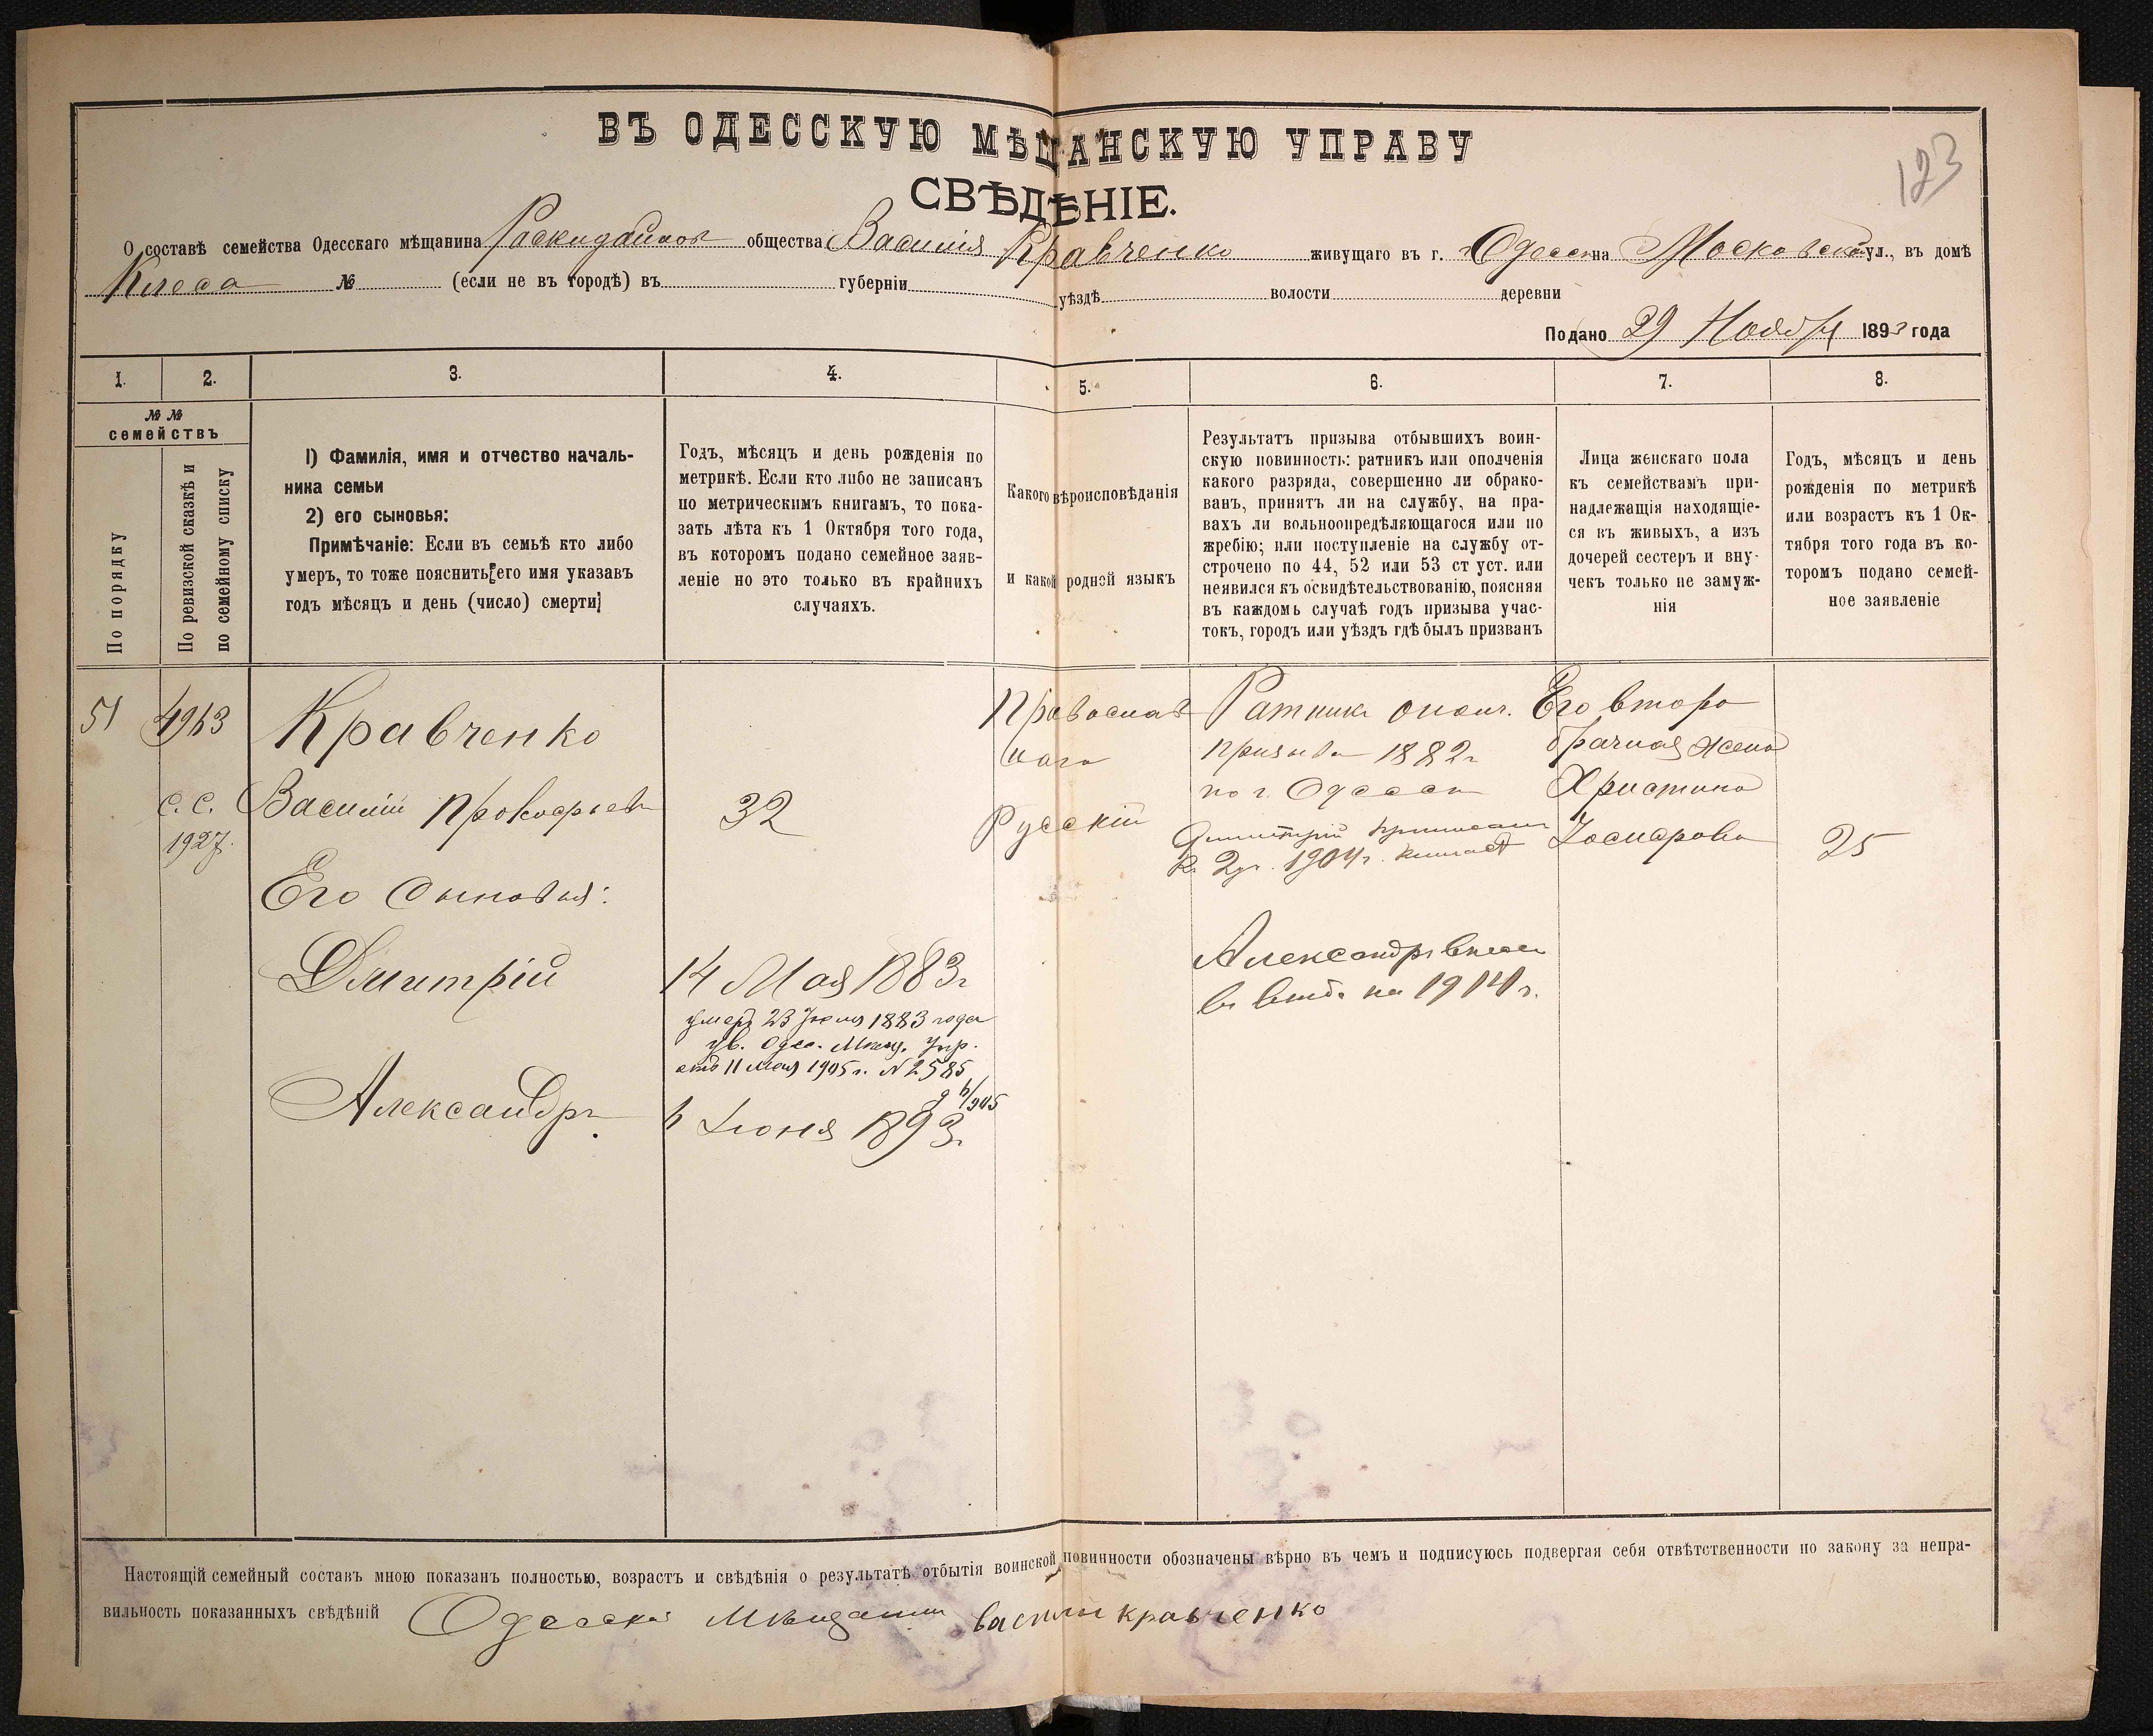 123
ВЪ ОДЕССКУЮ МѢЩАНСКУЮ УПРАВУ
СВѢДѢНІЕ.
О составѣ семейства Одесскаго мѣщанина Раскидайлов общества Василія Кравченко живущаго въ г. Одессѣ на Московской ул., въ домѣ
№ (если не въ городѣ) въ губерніи уѣздѣ волости деревни
Подано 29 Ноября 1893 года
1. 2. 3. 4. 5. 6. 7. 8.
№ №
семействъ
По порядку
По ревизской сказкѣ и
по семейному списку
1) Фамилія, имя и отчество началь-
ника семьи
2) его сыновья:
Примѣчаніе: Если въ семьѣ кто либо
умеръ, то тоже пояснить его имя указавъ
годъ мѣсяцъ и день (число) смерти]
Годъ, мѣсяцъ и день рожденія по
метрикѣ. Если кто либо не записанъ
по метрическимъ книгамъ, то пока-
зать лѣта къ 1 Октября того года,
въ которомъ подано семейное заяв-
леніе но это только въ крайнихъ
случаяхъ.
Какого вѣроисповѣданія
и какой родной языкъ
Результатъ призыва отбывшихъ воин-
скую повинность: ратникъ или ополченія
какого разряда, совершенно ли обрако-
ванъ, принятъ ли на службу, на пра-
вахъ ли вольноопредѣляющагося или по
жребію; или поступленіе на службу от-
строчено по 44, 52 или 53 ст уст. или
неявился къ освидѣтельствованію, поясняя
въ каждомъ случаѣ годъ призыва учас-
токъ, городъ или уѣздъ гдѣ былъ призванъ
Лица женскаго пола
къ семействамъ при-
надлежащія находящіе-
ся въ живыхъ, а изъ
дочерей сестеръ и вну-
чекъ только не замуж-
нія
Годъ, мѣсяцъ и день
рожденія по метрикѣ
или возрастъ къ 1 Ок-
тября того года въ ко-
торомъ подано семей-
ное заявленіе
51 4963
с. с.
1927.
Кравченко
Василій Прокофьев
32
Православ
наго
Русскій
Ратник ополч.
призыва 1882 г
по г. Одессѣ
Димитрій приписан
к 2 уч. 1904 г.
Его второ
брачная жена
Христина
25
Его Сыновья:
Дмитрій
14 Мая 1883 г
умеръ 23 Іюля 1883 года
ув. Одес. Мѣщ. Упр.
отъ 11 Мая 1905 г. № 2585
Александръ
6 Іюня 1893 г.
Александръ внесен
в на 1914 г.
Настоящій семейный составъ мною показанъ полностью, возрастъ и свѣдѣнія о результатѣ отбытія воинской повинности обозначены вѣрно въ чемъ и подписуюсь подвергая себя отвѣтственности по закону за непра-
вильность показанныхъ свѣдѣній Одесскій Мѣщанин Василій кравченко